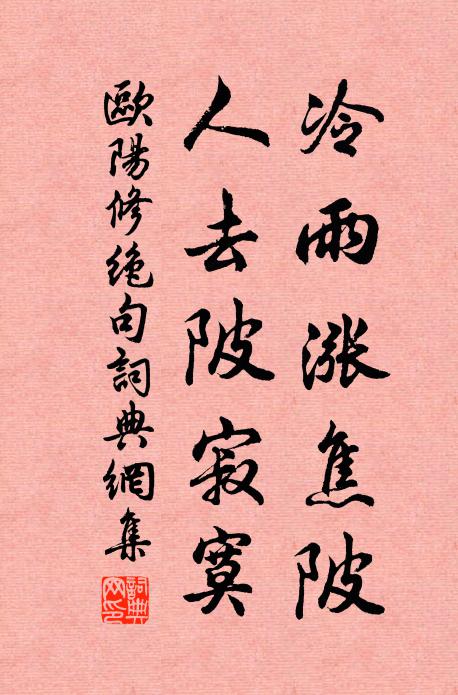 冷雨漲焦陂
人去陂寂寞
歐陽修絕句詞典網集
詞典網印